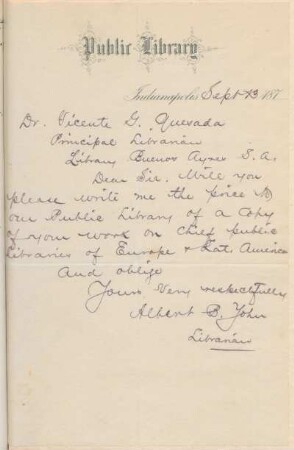 Public Library
Indianapolis, Sept 13 187
Dr. Vicente G. Quesada
Principal Librarian
Library Buenos Ayres S.A.
Dear Sir. Will you
please write me the price to
our Public Library of a copy
of your work on chief public
libraries of Europe & Lat. America
and oblige
Yours Very respectfully
Albert B. Yohn
Librarian